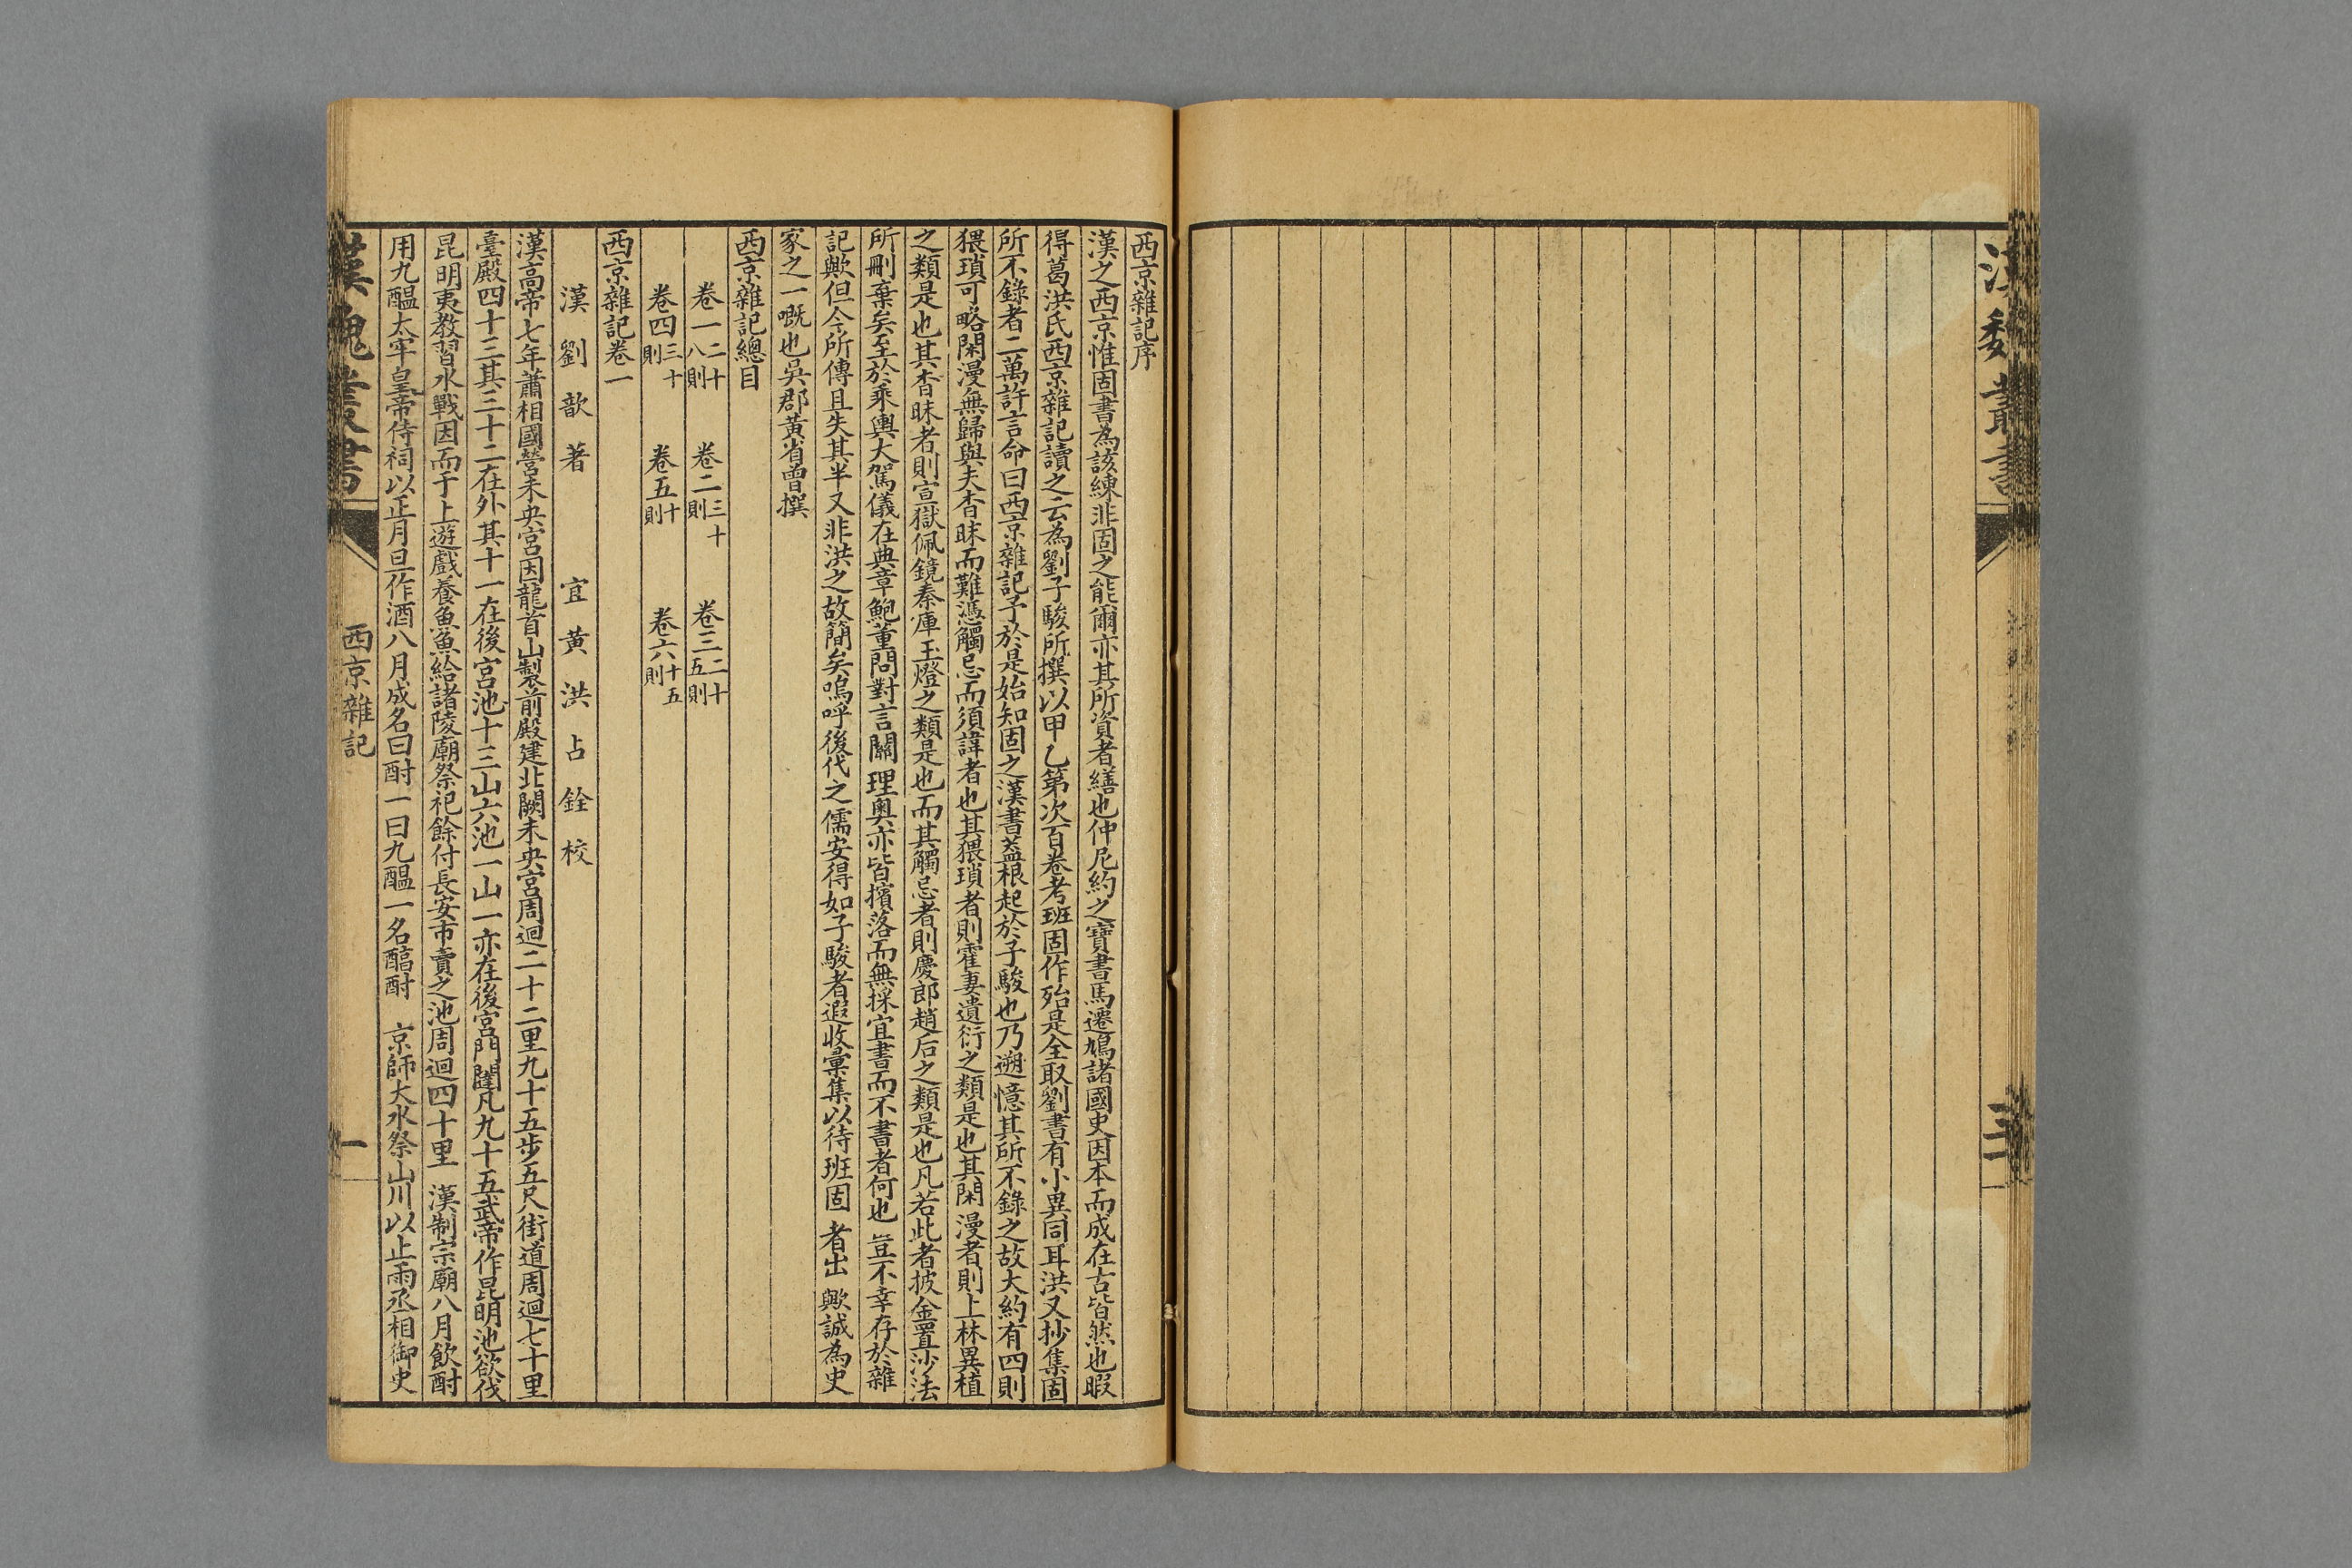 漢魏叢書
三
西京雜記序
漢之西京惟固書為該練非固之能爾亦其所資者繕也仲尼約之寶書馬遷鳩諸國史因本而成在古皆然也暇
得葛洪氏西京雜記讀之云為劉子駿所撰以甲乙第次百卷考班固作殆是全取劉書有小異同耳洪又抄集固
所不錄者二萬許言命曰西京雜記予於是始知固之漢書葢根起於子駿也乃遡憶其所不錄之故大約有四則
猥瑣可略閑漫無歸與夫杳昧而難憑觸忌而須諱者也其猥瑣者則霍妻遺衍之類是也其閑漫者則上林異植
之類是也其杳昧者則宣獄佩鏡秦庫玉燈之類是也而其觸忌者則慶郎趙后之類是也凡若此者披金置沙法
所刪棄矣至於乘輿大駕儀在典章鮑董問對言關理奧亦皆擯落而無採宜書而不書者何也豈不幸存於雜
記歟但今所傳且失其半又非洪之故簡矣嗚呼後代之儒安得如子駿者遐收彙集以待班固者出歟誠為史
家之一嘅也吳郡黃省曾撰
西京雜記總目
卷一二十八則 卷二三十則 卷三二十五則
卷四三十則 卷五十則 卷六十五則
西京雜記卷一
漢劉歆著 宜黃洪占銓校
漢高帝七年蕭相國營未央宮因龍首山製前殿建北闕未央宮周迴二十二里九十五步五尺街道周迴七十里
臺殿四十三其三十二在外其十一在後宮池十三山六池一山一亦在後宮門闥凡九十五武帝作昆明池欲伐
昆明夷教習水戰因而于上遊戲養魚魚給諸陵廟祭祀餘付長安市賣之池周迴四十里 漢制宗廟八月飲酎
用九醞太牢皇帝侍祠以正月旦作酒八月成名曰酎一曰九醞一名醕酎 京師大水祭山川以止雨丞相御史
漢魏叢書 西京雜記 一